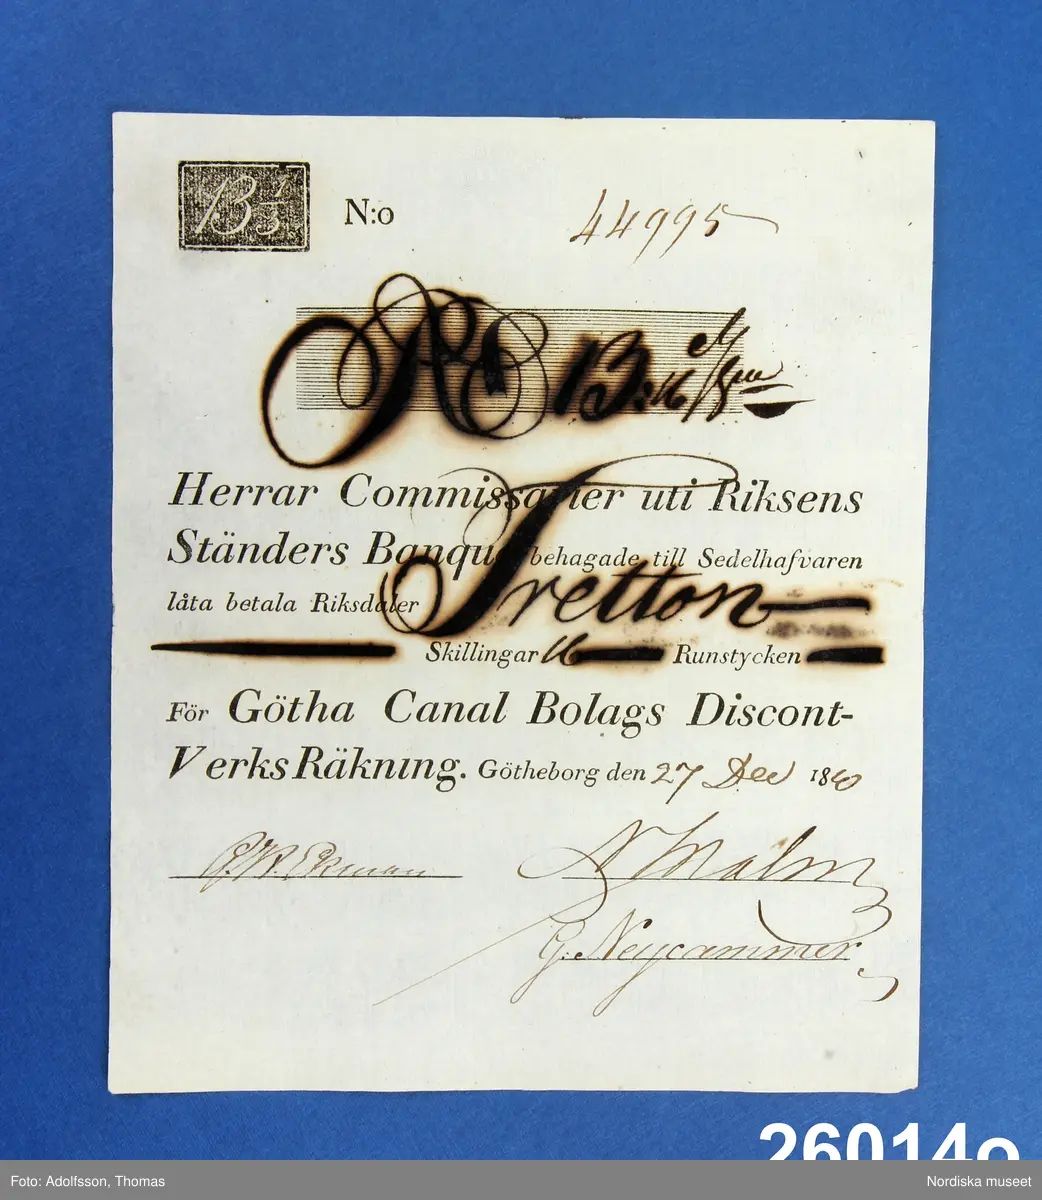 13 1/3 N:o 44995
Rd 13: 16
Herrar Commissarier uti Riksens
Ständers Banque behagade till Sedelhafvaren
låta betala Riksdaler Tretton
Skillingar 16 Runstycken
För Götha Canal Bolags Discont-
Verks Räkning. Götheborg den 27 Dec 1810
P. W. Ekman Malm
G. Neycammer
26014o
Foto: Adolfsson, Thomas Nordiska museet